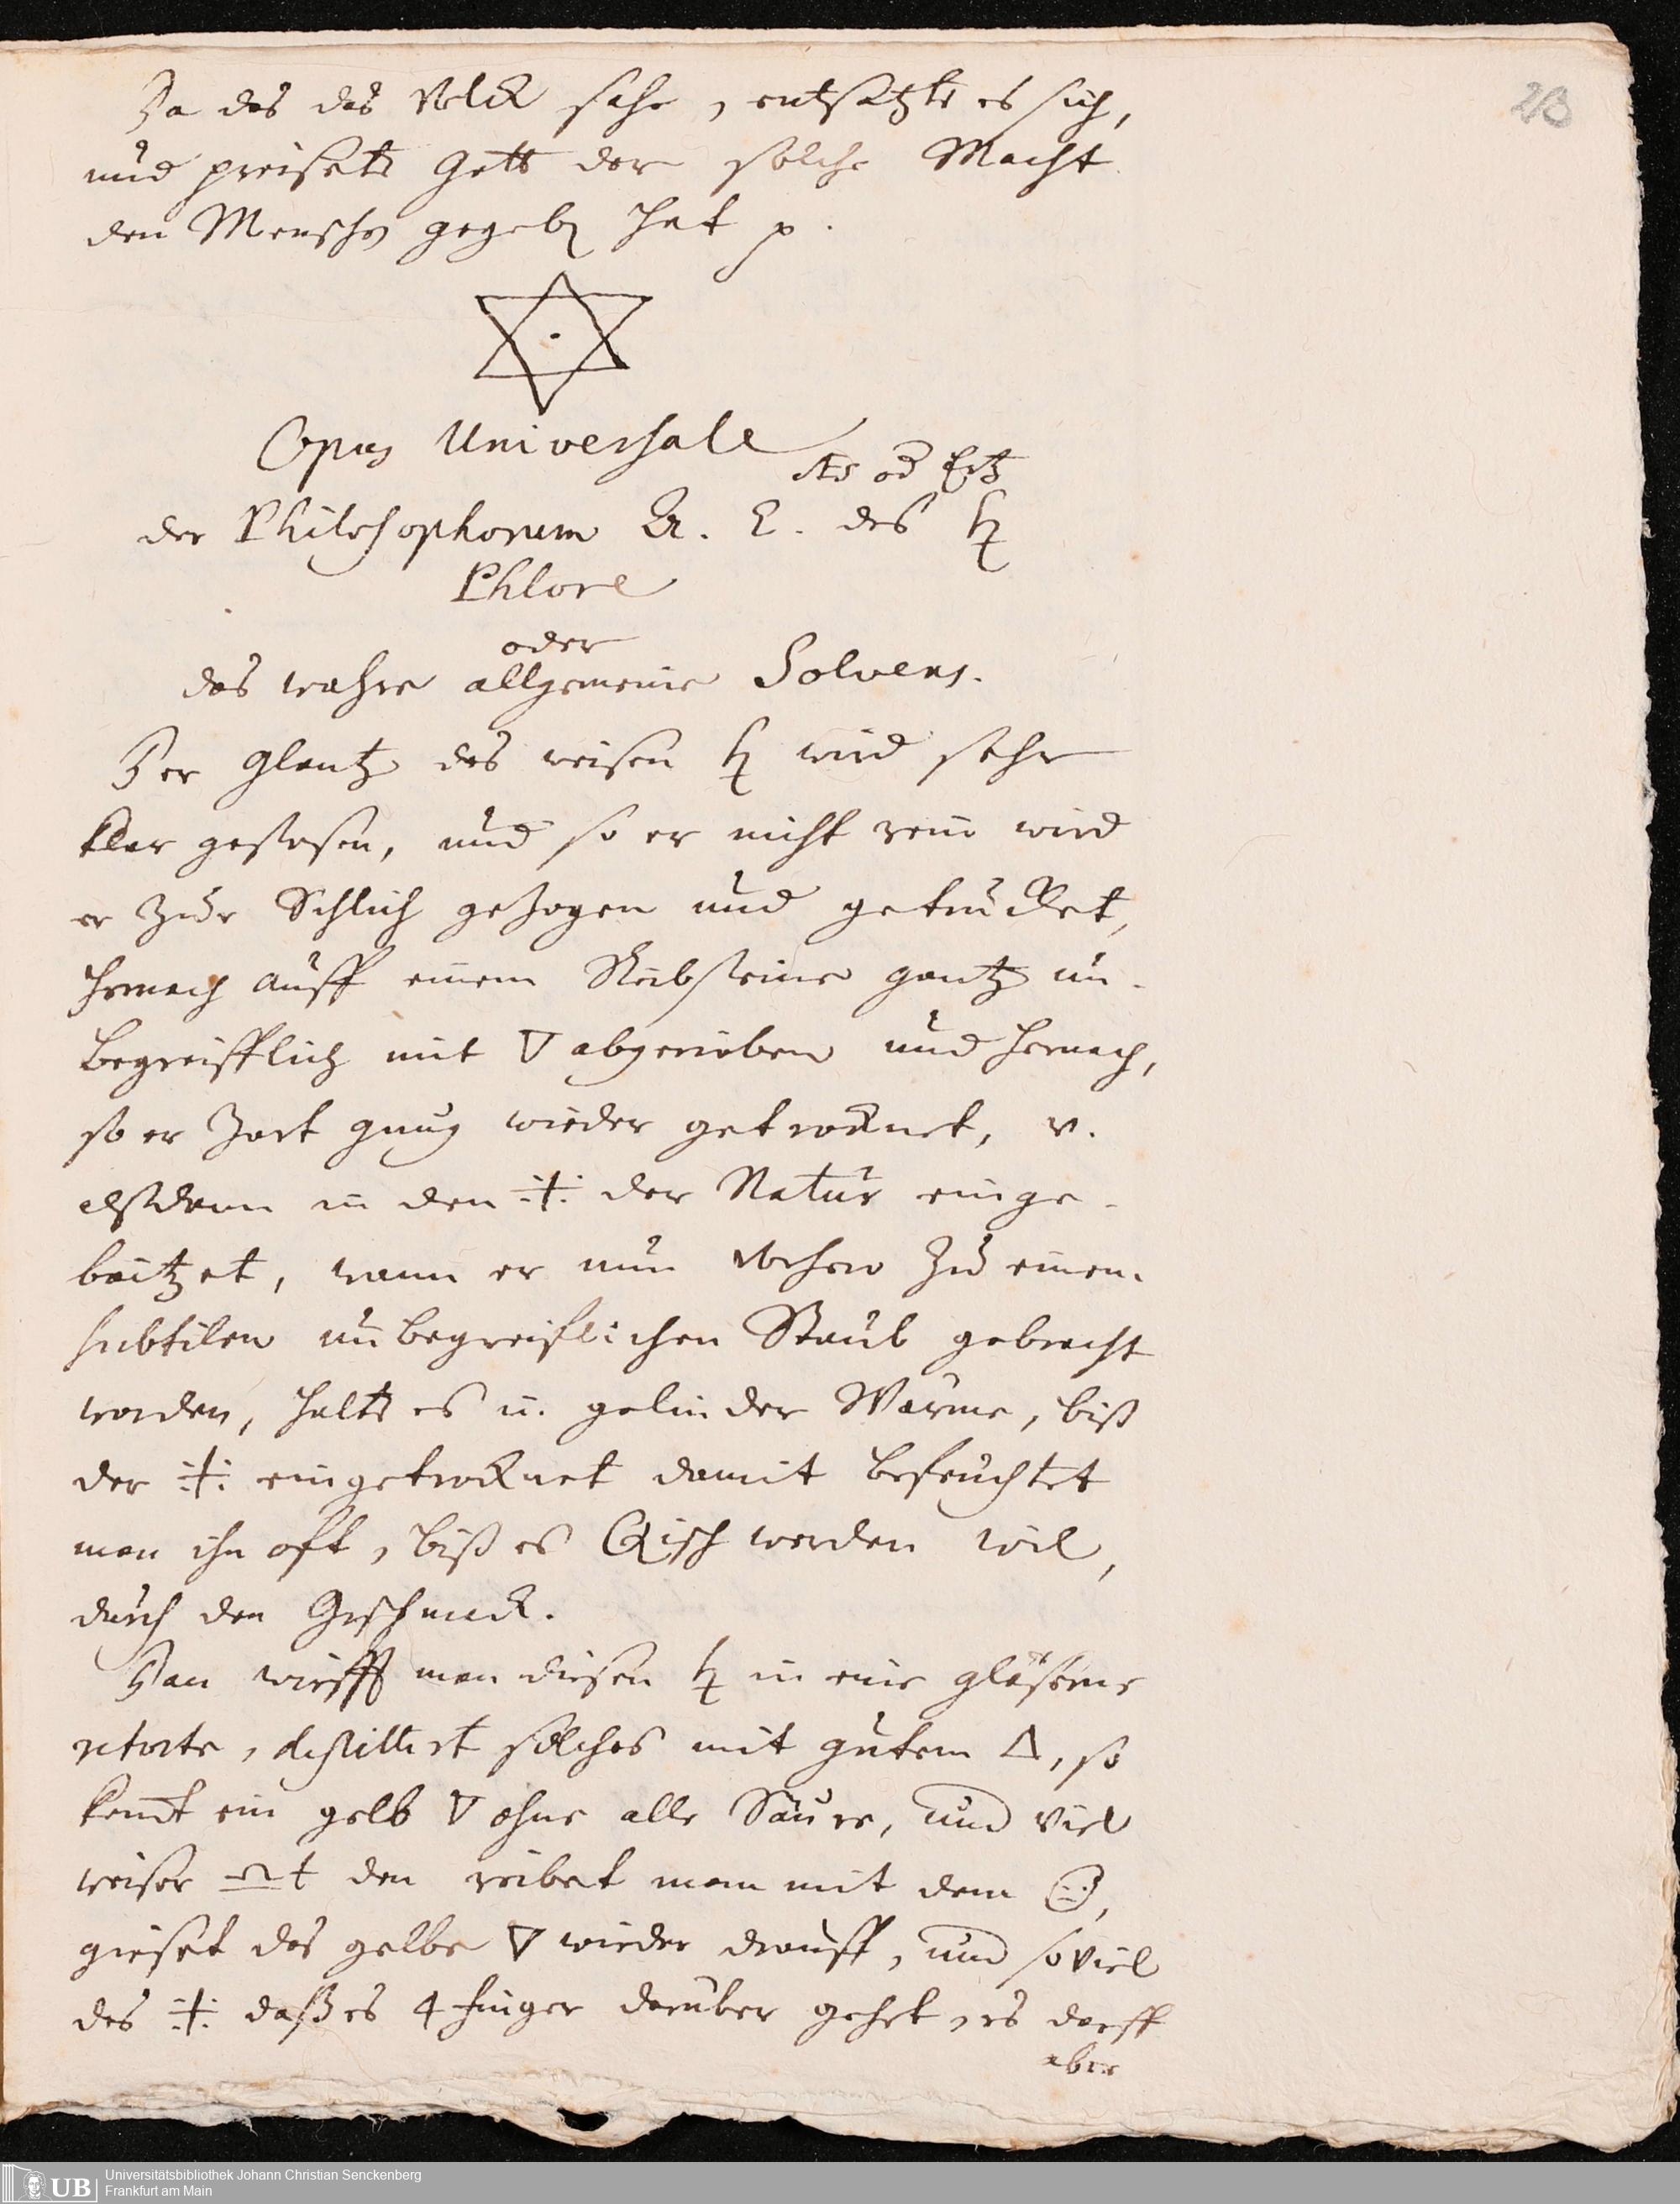 Da das das Volck sahe, entsatzte es sich,
und preisete Gott der solche Macht
den Menschen gegeben hat p.
213
Opus Universale
oder Ertz
der Philosophorum des ♄
Phlore
oder
das wahre allgemeine Solvens.
Der Glantz des weisen ♄ wird sehr
klar gestosen, und so er nicht rein wird
er zur Schlich gezogen und getrucknet,
hernach auff einem Reibsteine gantz un-
begreifflich mit 🜄 abgerieben und hernach,
so er Zart gnug wieder getrocknet, v.
alßdann in den ·/.· der Natur einge-
beitzet, wann er nun zu einen
subtilen unbegreiflichen Staub gebracht
worden, halte es in gelinder Wärme, biß
der ·/.· eingetrocknet damit befeuchtet
man ihn oft, biß es werden wil,
durch den Geschmack.
Dan wirfft man diesen ♄ in eine gläserne
retorte, destilliert solches mit gutem 🜂, so
komt ein gelb 🜄 ohne alle Säure, und viel
weiser den reibet man mit dem
gieset das gelbe 🜄 wieder drauff, und so viel
des ·/.· daß es 4 finger darüber gehet, es darff
aber
UB Universitätsbibliothek Johann Christian Senckenberg
Frankfurt am Main